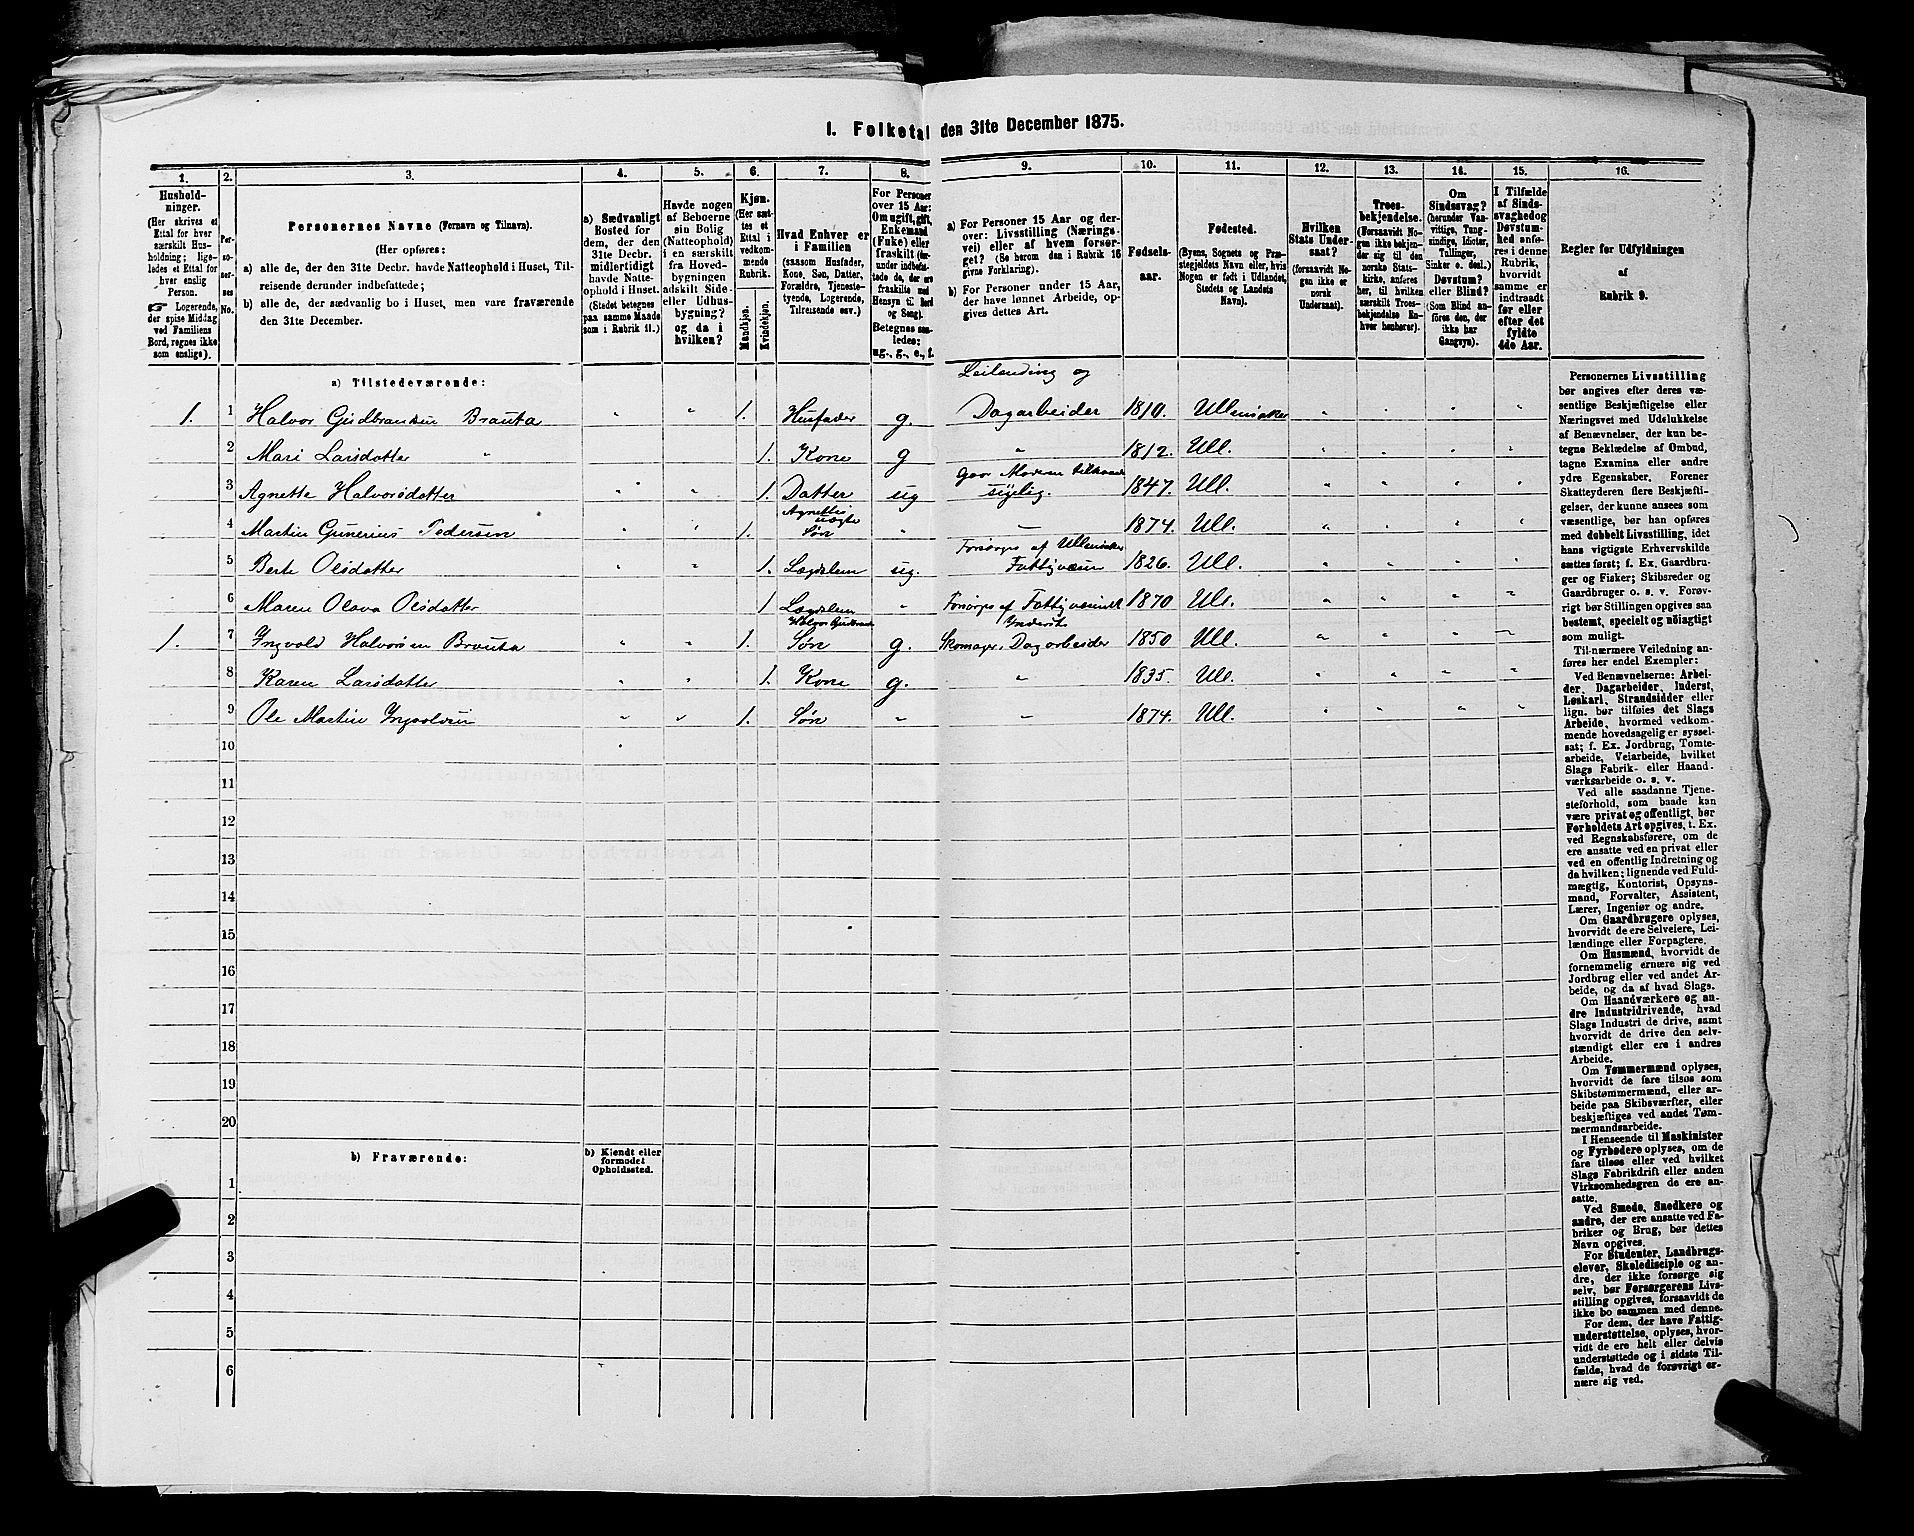 I. Folketal den 31te December 1875.
1.
Hushold-
ninger.
(Her skrives et
Ettal for hver
særskilt Hus-
holdning; lige-
ledes et Ettal for
hver enslig
Person.
☞ Logerende,
der spise Middag
ved Familiens
Bord, regnes ikke
som enslige).
2.
Per-
so-
ner-
nes
No.
3.
Personernes Navne (Fornavn og Tilnavn).
(Her opføres:
a) alle de, der den 31te Decbr. havde Natteophold i Huset, Til-
reisende derunder indbefattede;
b) alle de, der sædvanlig bo i Huset, men vare fraværende
den 31te December.
4.
a) Sædvanligt
Bosted for
dem, der den
31te Decbr.
midlertidigt
havde Natte-
ophold i Huset.
(Stedet betegnes
paa samme Maade
som i Rubrik 11.)
5.
Havde nogen
af Beboerne
sin Bolig
(Natteophold)
i en særskilt
fra Hoved-
bygningen
adskilt Side-
eller Udhus-
bygning?
og da i
hvilken?
6.
Kjøn.
(Her sæt-
tes et
Ettal i
vedkom-
mende
Rubrik.
Mandkjøn.
Kvindekjøn.
7.
Hvad Enhver er
i Familien
(saasom Husfader,
Kone, Søn, Datter,
Forældre, Tjeneste-
tyende, Logerende,
Tilreisende osv.)
8.
For Personer
over 15 Aar:
Om ugift, gift,
Enkemand
(Enke) eller
fraskilt
Betegnes saa-
ledes:
ug., g., e., f.
9.
a) For Personer 15 Aar og der-
over: Livsstilling (Nærings-
vei) eller af hvem forsør-
get? (Se herom den i Rubrik 16
givne Forklaring).
b) For Personer under 15 Aar,
der have lønnet Arbeide, op-
gives dettes Art.
10.
Fødsels-
aar.
11.
Fødested.
(Byens, Sognets og Præ-
stegjeldets Navn eller, hvis
Nogen er født i Udlandet,
Stedets og Landets
Navn).
12.
Hvilken
Stats Under-
saat?
(forsaavidt No-
gen ikke er
norsk
Undersaat).
13.
Troes-
bekjendelse.
(Forsaavidt No-
gen ikke bekjen-
der sig til den
norske Stats-
kirke, anføres
her, til hvilken
særskilt Troes-
bekjendelse En-
hver henhører).
14.
Om
Sindssvag?
(herunder Van-
vittige, Tung-
sindige, Idioter,
Tullinger,
Sinker o. desl.)
Døvstum?
eller Blind?
(Som Blind an-
føres den, der
ikke har
Gangsyn).
15.
I Tilfælde
af Sinds-
svaghed og
Døvstum-
hed anfø-
res i denne
Rubrik,
hvorvidt
samme er
indtraadt
før eller
efter det
fyldte
4de Aar.
16.
Regler for Udfyldningen
af
Rubrik 9.
a) Tilstedeværende:
Leilænding og
1. 1 Halvor Gudbrandsen Brauta " " 1. Husfader g. Dagarbeider 1810. Ullensaker " " " "
2 Mari Larsdatter " 1. Kone g " 1812. Ull. " " " "
Gaar Moderen tilhaande
3 Agnette Halvorsdatter " " 1. Datter ug sygelig. 1847. Ull. " " " "
Agnettes
uægte
4 Martin Gunerius Pedersen " " 1. Søn " — 1874. Ull. " " " "
Forsørges af Ullensaker
5 Berte Olsdatter " " 1. Lægdslem ug. Fattigvæsen 1826. Ull. " " " "
6 Maren Olava Olsdatter 1 Lægdslem " Forsørges af Fattigvæsenet 1870 Ull. " " " "
Halvor Gudbrands Inderst
1. 7 Ingvald Halvorsen Brauta " " 1. Søn g. Skomager, Dagarbeider 1850 Ull. " " " "
8 Karen Larsdatter " " 1. Kone g. " 1835. Ull. " " " "
9 Ole Martin Ingvaldsen " " 1. Søn " " 1874. Ull. " " " "
10
11
12
13
14
15
16
17
18
19
20
b) Fraværende:
b) Kjendt eller
formodet
Opholdssted.
1
2
3
4
5
6
Personernes Livsstilling
bør angives efter deres væ-
sentlige Beskjæftigelse eller
Næringsvei med Udelukkelse
af Benævnelser, der kun be-
tegne Beklædelse af Ombud,
tagne Examina eller andre
ydre Egenskaber. Forener
Skatteyderen flere Beskjæfti-
gelser, der kunne ansees som
væsentlige, bør han opføres
med dobbelt Livsstilling, idet
hans vigtigste Erhvervskilde
sættes først; f. Ex. Gaardbru-
ger og Fisker; Skibsreder og
Gaardbruger o. s. v. Forøv-
rigt bør Stillingen opgives saa
bestemt, specielt og nøiagtigt
som muligt.
Til nærmere Veiledning an-
føres her endel Exempler:
Ved Benævnelserne: Arbei-
der, Dagarbeider, Inderst,
Løskarl, Strandsidder eller
lign. bør tilføies det Slags
Arbeide, hvormed vedkom-
mende hovedsagelig er syssel-
sat; f. Ex. Jordbrug, Tomte-
arbeide, Veiarbeide, hvilket
Slags Fabrik- eller Haand-
værksarbeide o. s. v.
Ved alle saadanne Tjene-
steforhold, som baade kan
være privat og offentligt, bør
Forholdets Art opgives, f. Ex.
ved Regnskabsførere, om de
ere ansatte ved en privat eller
ved en offentlig Indretning og
da hvilken; lignende ved Fuld-
mægtig, Kontorist, Opsyns-
mand, Forvalter, Assistent,
Lærer, Ingeniør og andre.
Om Gaardbrugere oplyses,
hvorvidt de ere Selveiere, Lei-
lændinge eller Forpagtere.
Om Husmænd, hvorvidt de
fornemmelig ernære sig ved
Jordbrug eller ved andet Ar-
beide, og da af hvad Slags.
Om Haandværkere og an-
dre Industridrivende, hvad
Slags Industri de drive, samt
hvorvidt de drive den selv-
stændigt eller ere i andres
Arbeide.
Om Tømmermænd oplyses,
hvorvidt de fare tilsøs som
Skibstømmermænd, eller ar-
beide paa Skibsværfter, eller
beskjæftiges ved andet Tøm-
mermandsarbeide.
I Henseende til Maskinister
og Fyrbødere oplyses, om de
fare tilsøs eller ved hvilket
Slags Fabrikdrift eller anden
Virksomhedsgren de ere an-
satte.
Ved Smede, Snedkere og
andre, der ere ansatte ved Fa-
briker og Brug, bør dettes
Navn opgives.
For Studenter, Landbrugs-
elever, Skoledisciple og an-
dre, der ikke forsørge sig
selv, bør Forsørgerens Livs-
stilling opgives, forsaavidt de
ikke bo sammen med denne.
For dem, der have Fattig-
understøttelse, oplyses, hvor-
vidt de ere helt eller delvis
understøttede og i sidste Til-
fælde, hvad de forøvrigt er-
nære sig ved.